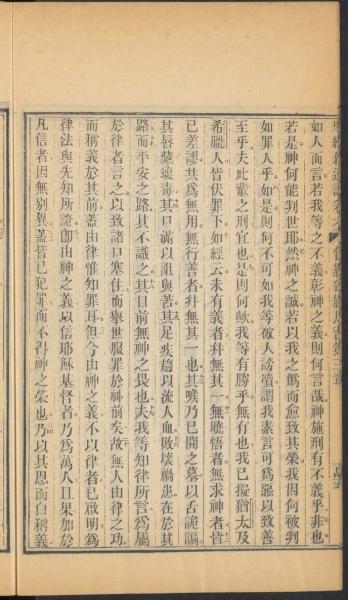 聖經新遺詔書卷之六 使徒保羅與羅馬書第三章
如人而言若我等之不義彰神之義則何言哉神施刑有不義乎非也
若是神何能判世耶然神之誠若以我之僞而愈致其榮我因何被判
如罪人乎如是則何不可如我等被人謗讟謂我素言可爲惡以致善
至乎夫此輩之刑宜也是則何歟我等有勝乎無有也我已擬猶太及
希臘人皆伏罪下如經云未有義者幷無其一無聽悟者無求神者皆
已差謬共爲無用無行善者幷無其一也其喉乃已開之墓以舌詭謳
其唇藏虺毒其口滿以詛與苦其足疾趨以流人血敗壞禍患在於其
路而平安之路其不識之其目前無神之畏也夫我等知律所言爲屬
於律者言之以致諸口塞住而舉世服罪於神前矣故無人由律之功
而稱義於其前蓋由律惟知罪耳但今由神之義不以律者已啟明爲
律法與先知所證即出神之義以信耶穌基督者乃爲萬人且果加於
凡信者因無別異蓋皆已犯罪而不得神之榮也乃以其恩而白稱義